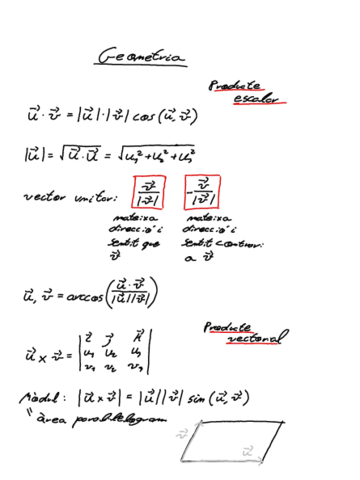 Geometria
Producte
escalar
u⃗ · v⃗ = |u⃗| · |v⃗| cos(u⃗, v⃗)
|u⃗| = √(u⃗ · u⃗) = √(u₁² + u₂² + u₃²)
vector unitari: v⃗/|v⃗|   - v⃗/|v⃗|
mateixa   mateixa
direcció i   direcció i
sentit que   sentit contrari
v⃗   a v⃗
u⃗, v⃗ = arccos(u⃗ · v⃗ / |u⃗||v⃗|)
Producte
vectorial
u⃗ × v⃗ = | i⃗ j⃗ k⃗ |
| u₁ u₂ u₃ |
| v₁ v₂ v₃ |
Mòdul: |u⃗ × v⃗| = |u⃗||v⃗| sin(u⃗, v⃗)
" àrea paral·lelogram
v⃗
u⃗